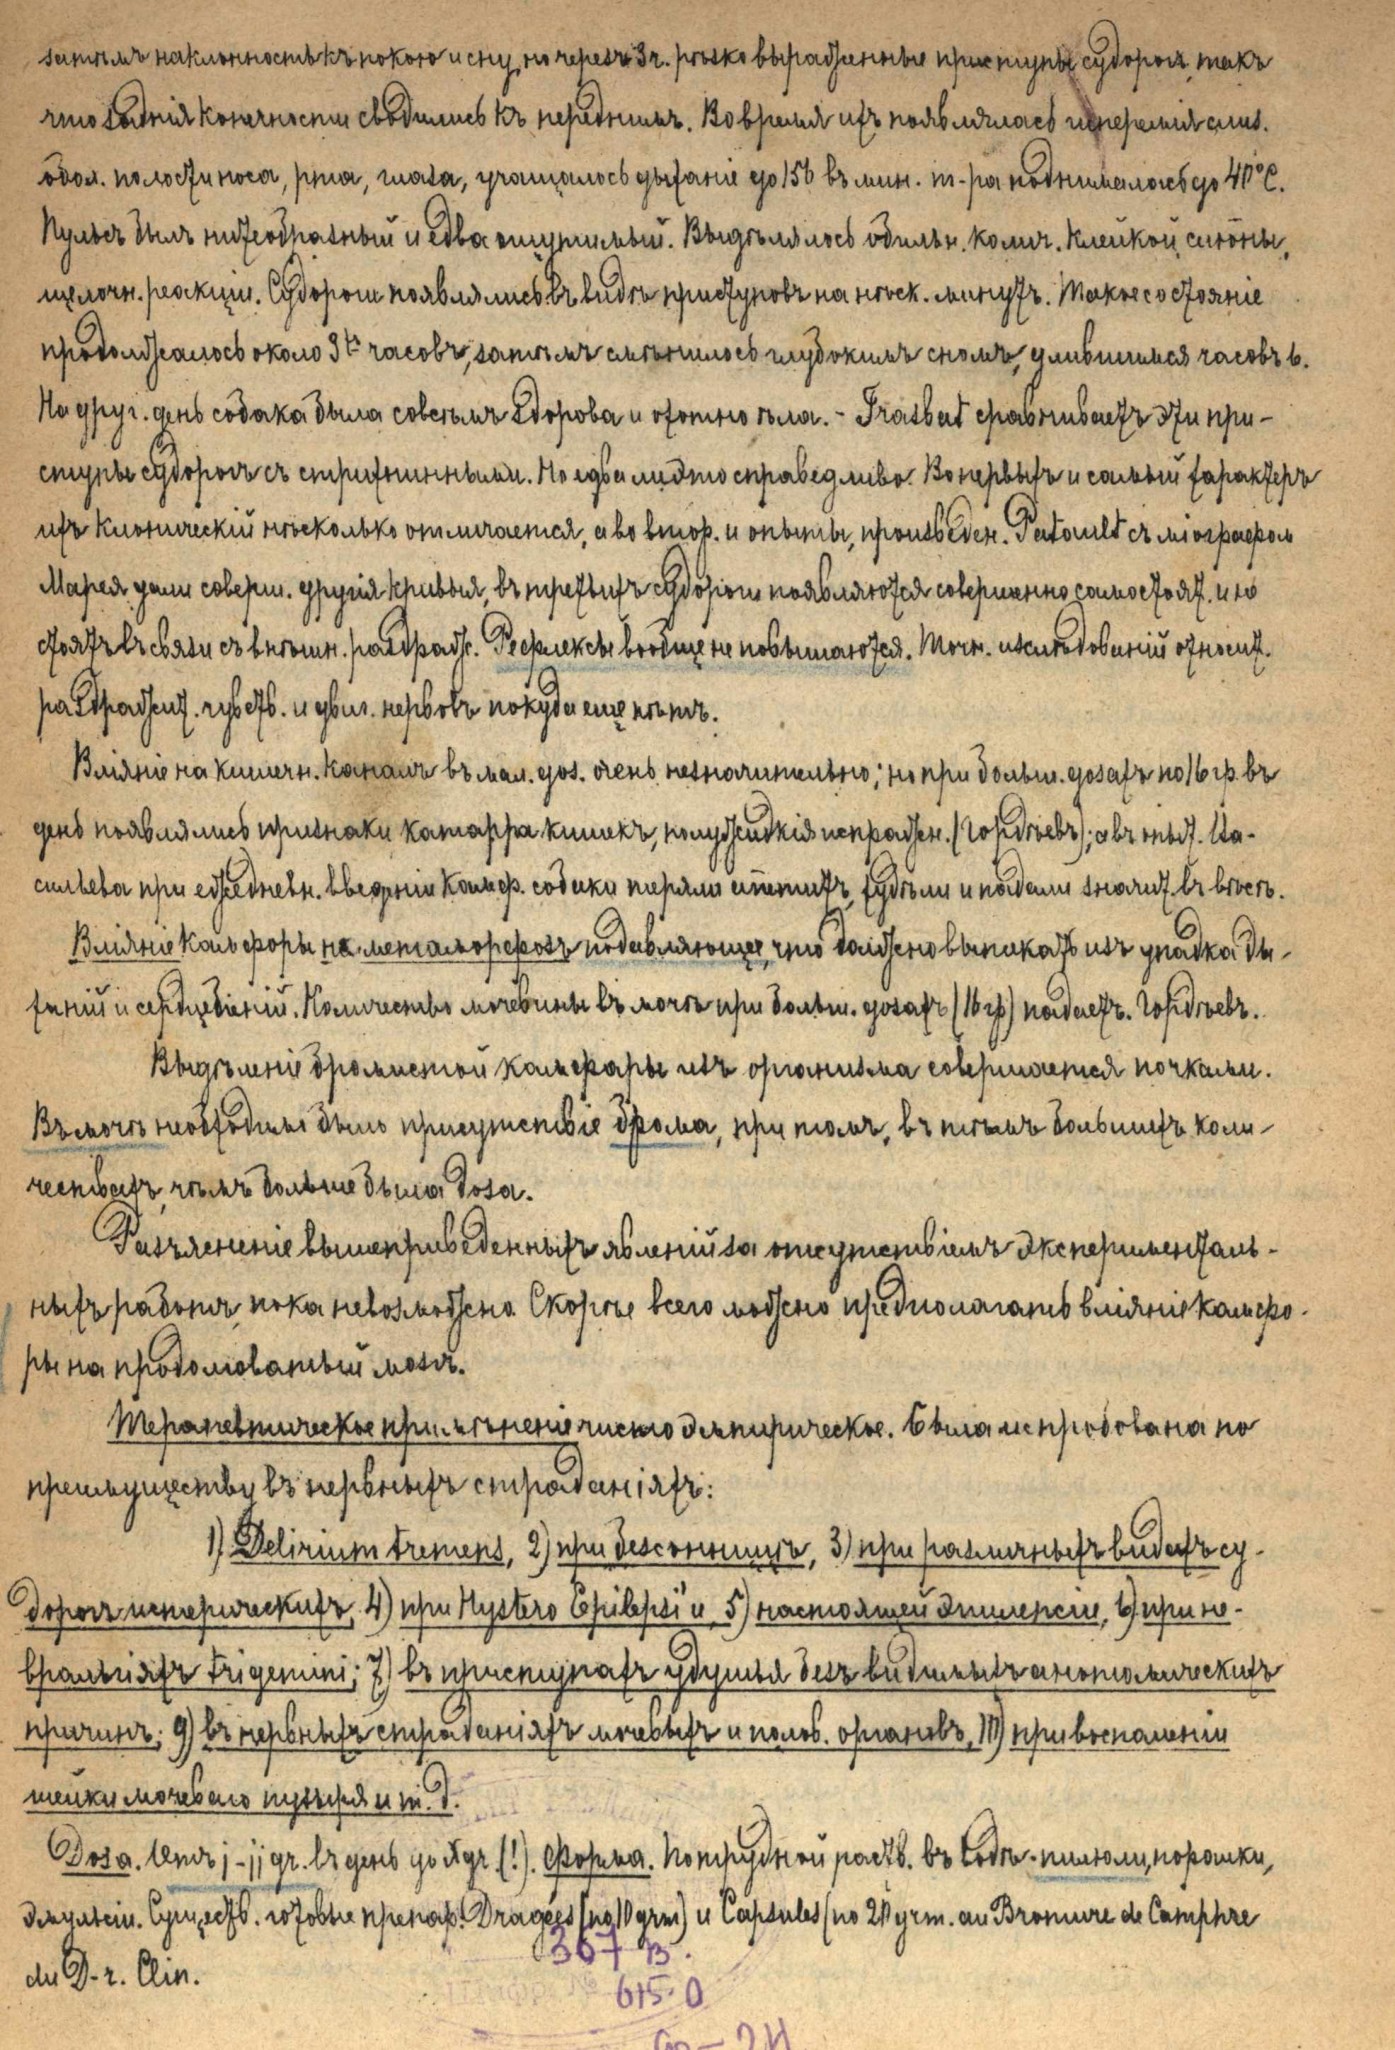 затѣмъ наклонность къ покою и сну, но черезъ 3 ч. рѣзко выраженные приступы судорогъ, такъ
что заднія конечности сводились къ переднимъ. Во время ихъ появлялась гиперемія слиз.
обол. полости носа, рта, глаза, учащалось дыханіе до 156 въ мин. т-ра поднималась до 40°С.
Пульсъ былъ нитеобразный и едва ощутимый. Выдѣлялось обильн. колич. клейкой слюны,
щелочн. реакціи. Судороги появлялись въ видѣ приступовъ на нѣск. минутъ. Такое состояніе
продолжалось около 3хъ часовъ, затѣмъ смѣнилось глубокимъ сномъ, длившимся часовъ 6.
На друг. день собака была совсѣмъ здорова и охотно ѣла. – Trasbot сравниваетъ эти при-
ступы судорогъ съ стрихнинными. Но едва ли это справедливо. Во первыхъ и самый характеръ
ихъ клоническій нѣсколько отличается, а во втор. и опыты, произведен. Patault съ міографом
Марея дали соверш. другія кривыя, въ третьихъ судороги появляются совершенно самостоят. и не
стоятъ въ связи съ внѣшн. раздраж. Рефлексы вообще не повышаются. Точн. изслѣдованій относит.
раздражит. чувств. и двиг. нервовъ покуда еще нѣтъ.
Вліяніе на кишечн. каналъ въ мал. доз. очень незначительно; но при больш. дозахъ по 16 гр. въ
день появлялись признаки катарра кишекъ, полужидкія испражн. (Гордѣевъ); а въ опыт. Ва-
сильева при ежедневн. введеніи камф. собаки теряли апетитъ, худѣли и падали значит. въ вѣсѣ.
Вліяніе камфоры на метаморфозъ подавляющее, что должно вытекать изъ упадка ды-
ханій и сердцебіеній. Количество мочевины въ мочѣ при больш. дозахъ (16 гр) падаетъ. Гордѣевъ.
Выдѣленіе бромистой камфары изъ организма совершается почками.
Въ мочѣ необходимо было присутствіе брома, при томъ, въ тѣмъ большихъ коли-
чествахъ, чѣмъ больше была доза.
Разъясненіе вышеприведенныхъ явленій за отсутствіемъ эксперименталь-
ныхъ работъ, пока невозможно. Скорѣе всего можно предполагать вліяніе камфо-
ры на продолговатый мозгъ.
Терапевтическое примѣненіе чисто эмпирическое. Была испробована по
преимуществу въ нервныхъ страданіяхъ:
1) Delirium tremens, 2) при безсонницѣ, 3) при различныхъ видахъ су-
дорогъ истерическихъ, 4) при Hystero Epilepsi'и, 5) настоящей эпилепсіи, 6) при не-
вральгіяхъ trigemini; 7) въ приступахъ удушья безъ видимыхъ анатомическихъ
причинъ; 9) въ нервныхъ страданіяхъ мочевыхъ и полов. органовъ, 10) при воспаленіи
шейки мочеваго пузыря и т. д.
Доза. Отъ j-jj gr. въ день до X gr. (!). Форма. По трудной раств. въ водѣ – пилюли, порошки,
эмульсіи. Существ. готовые препар. Dragées (по 10 grm) и Capsules (по 20 grm. au Bromure de Camphre
du D-r. Clin.
367 в.
615.0